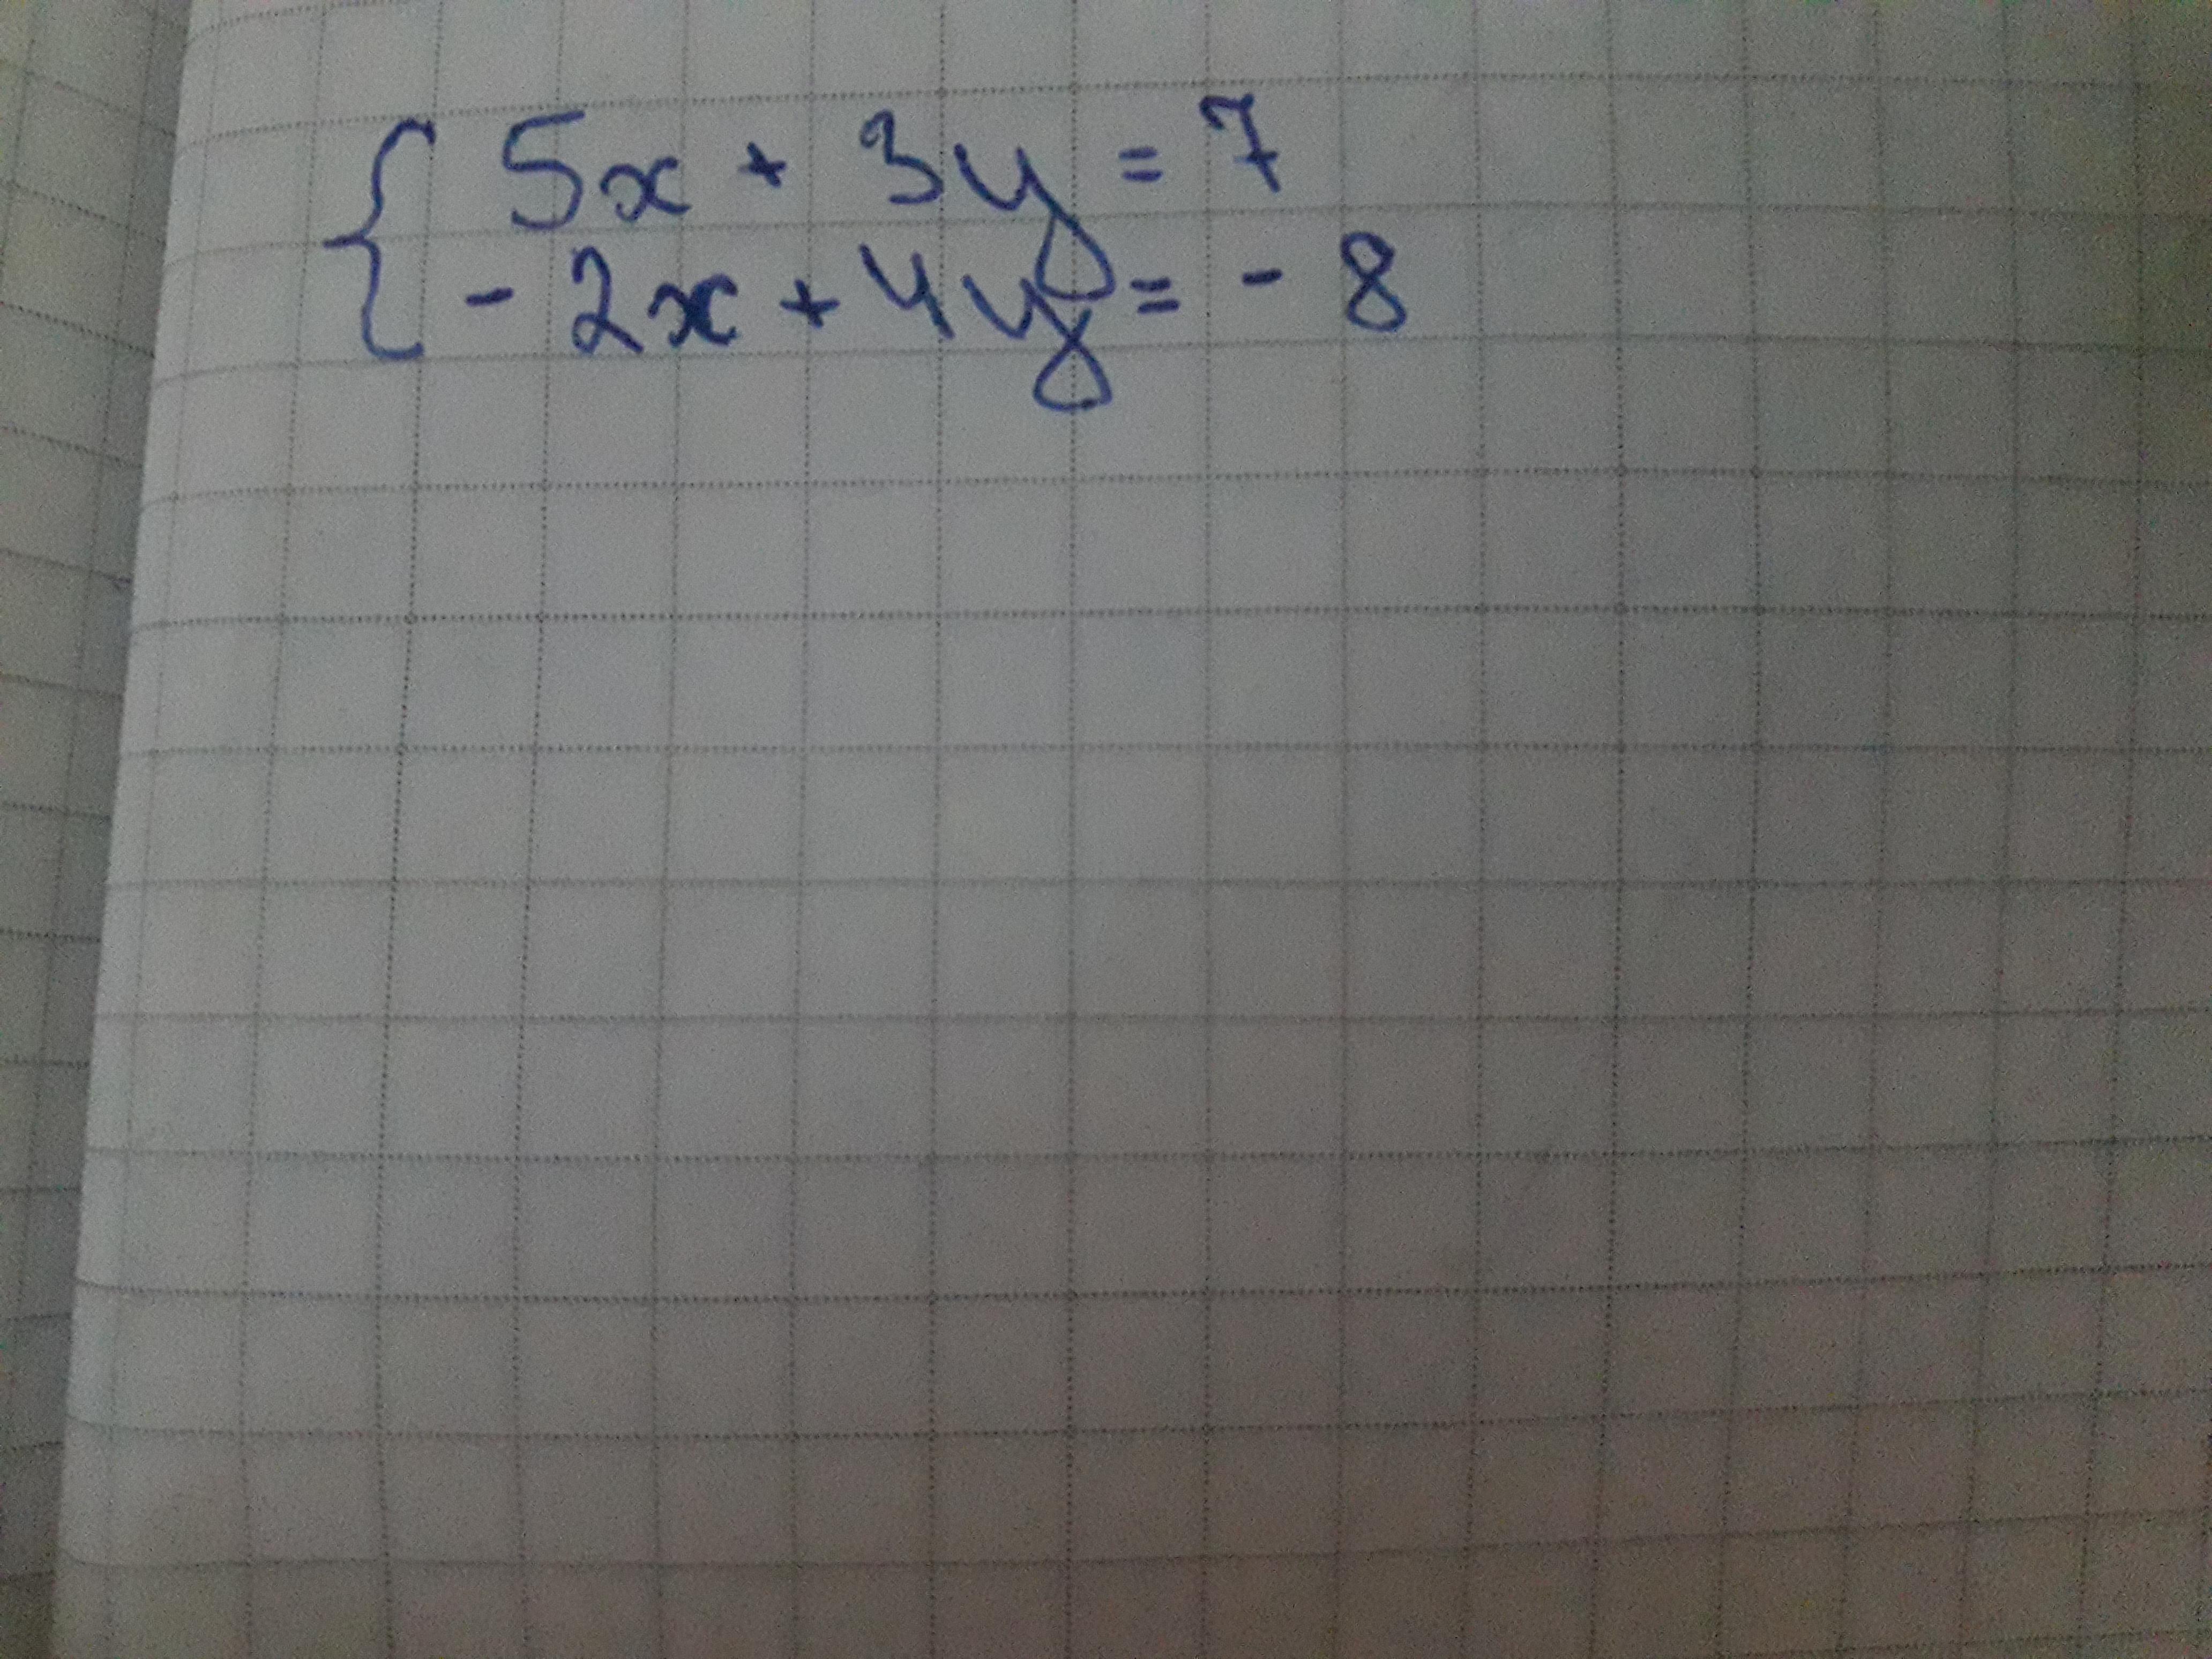 { 5x + 3y = 7
- 2x + 4y = - 8